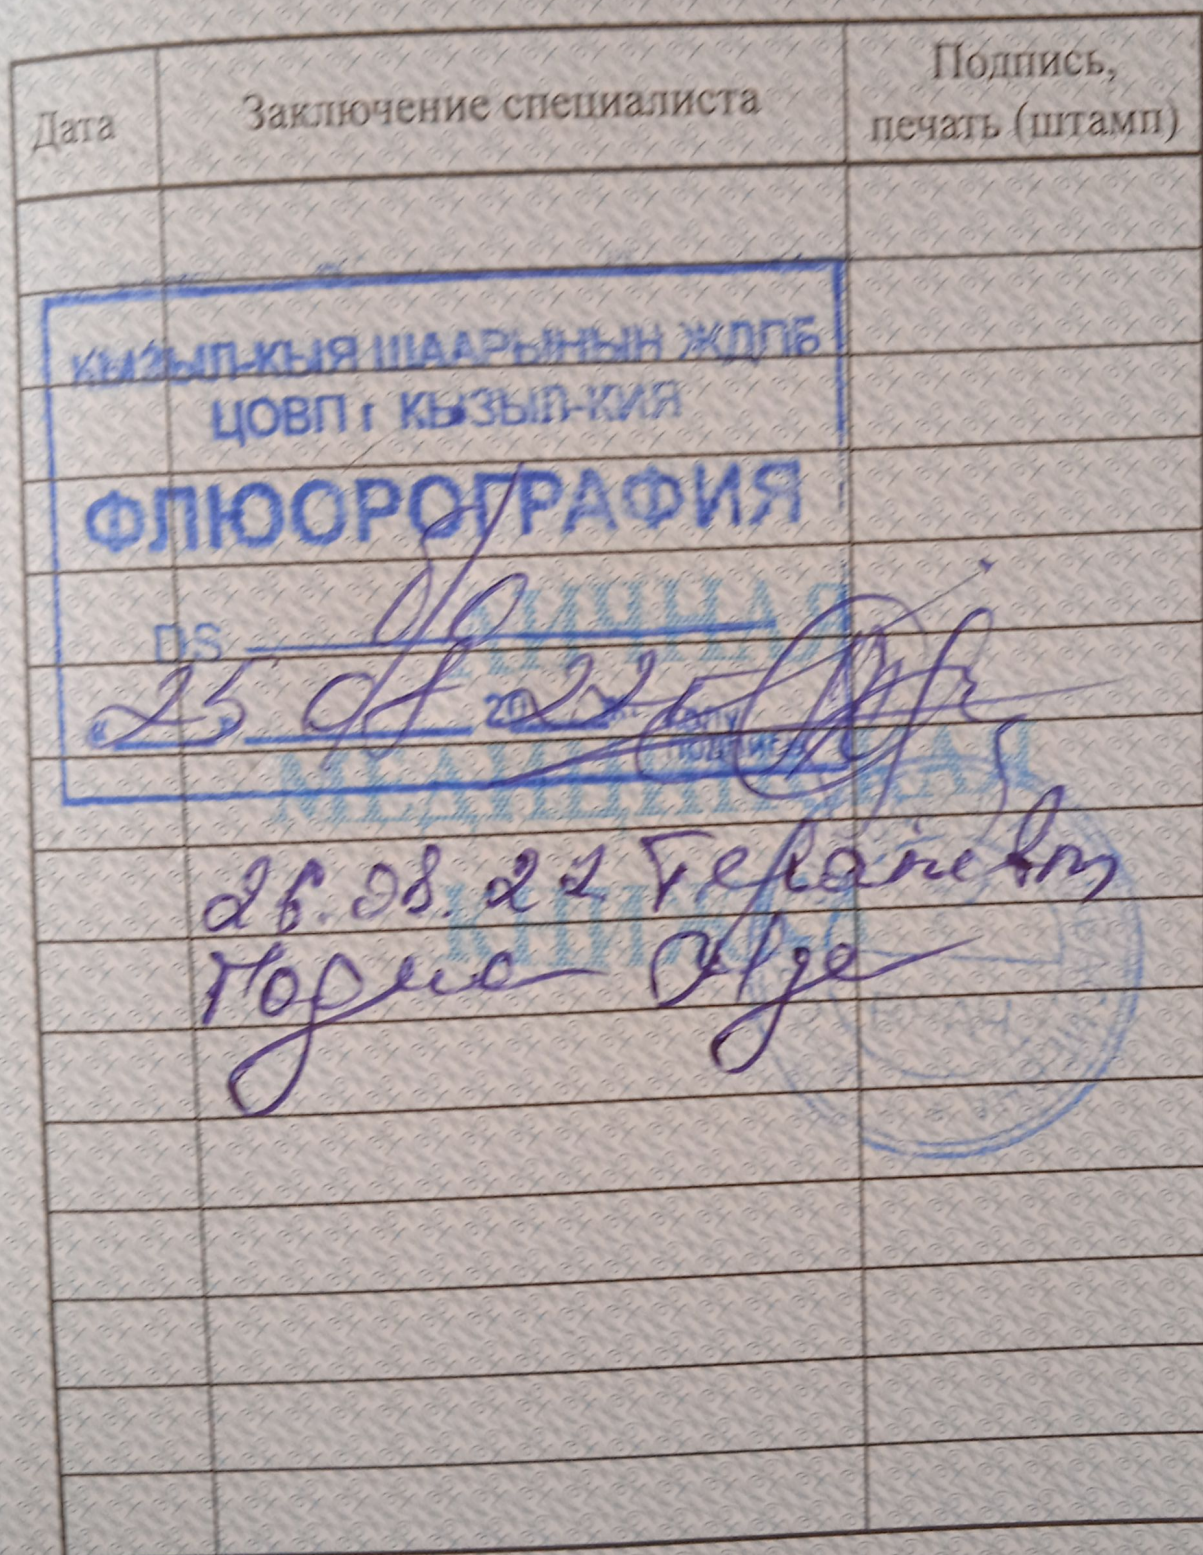 Дата
Заключение специалиста
Подпись,
печать (штамп)
КЫЗЫЛ-КЫЯ ШААРЫНЫН ЖДПБ
ЦОВП г КЫЗЫЛ-КИЯ
ФЛЮОРОГРАФИЯ
DS
ЛИЧНАЯ
«25» 08 2022 г. колу
подпись
МЕДИЦИНСКАЯ
26.08.22 Терапевт
КНИЖКА
Годна